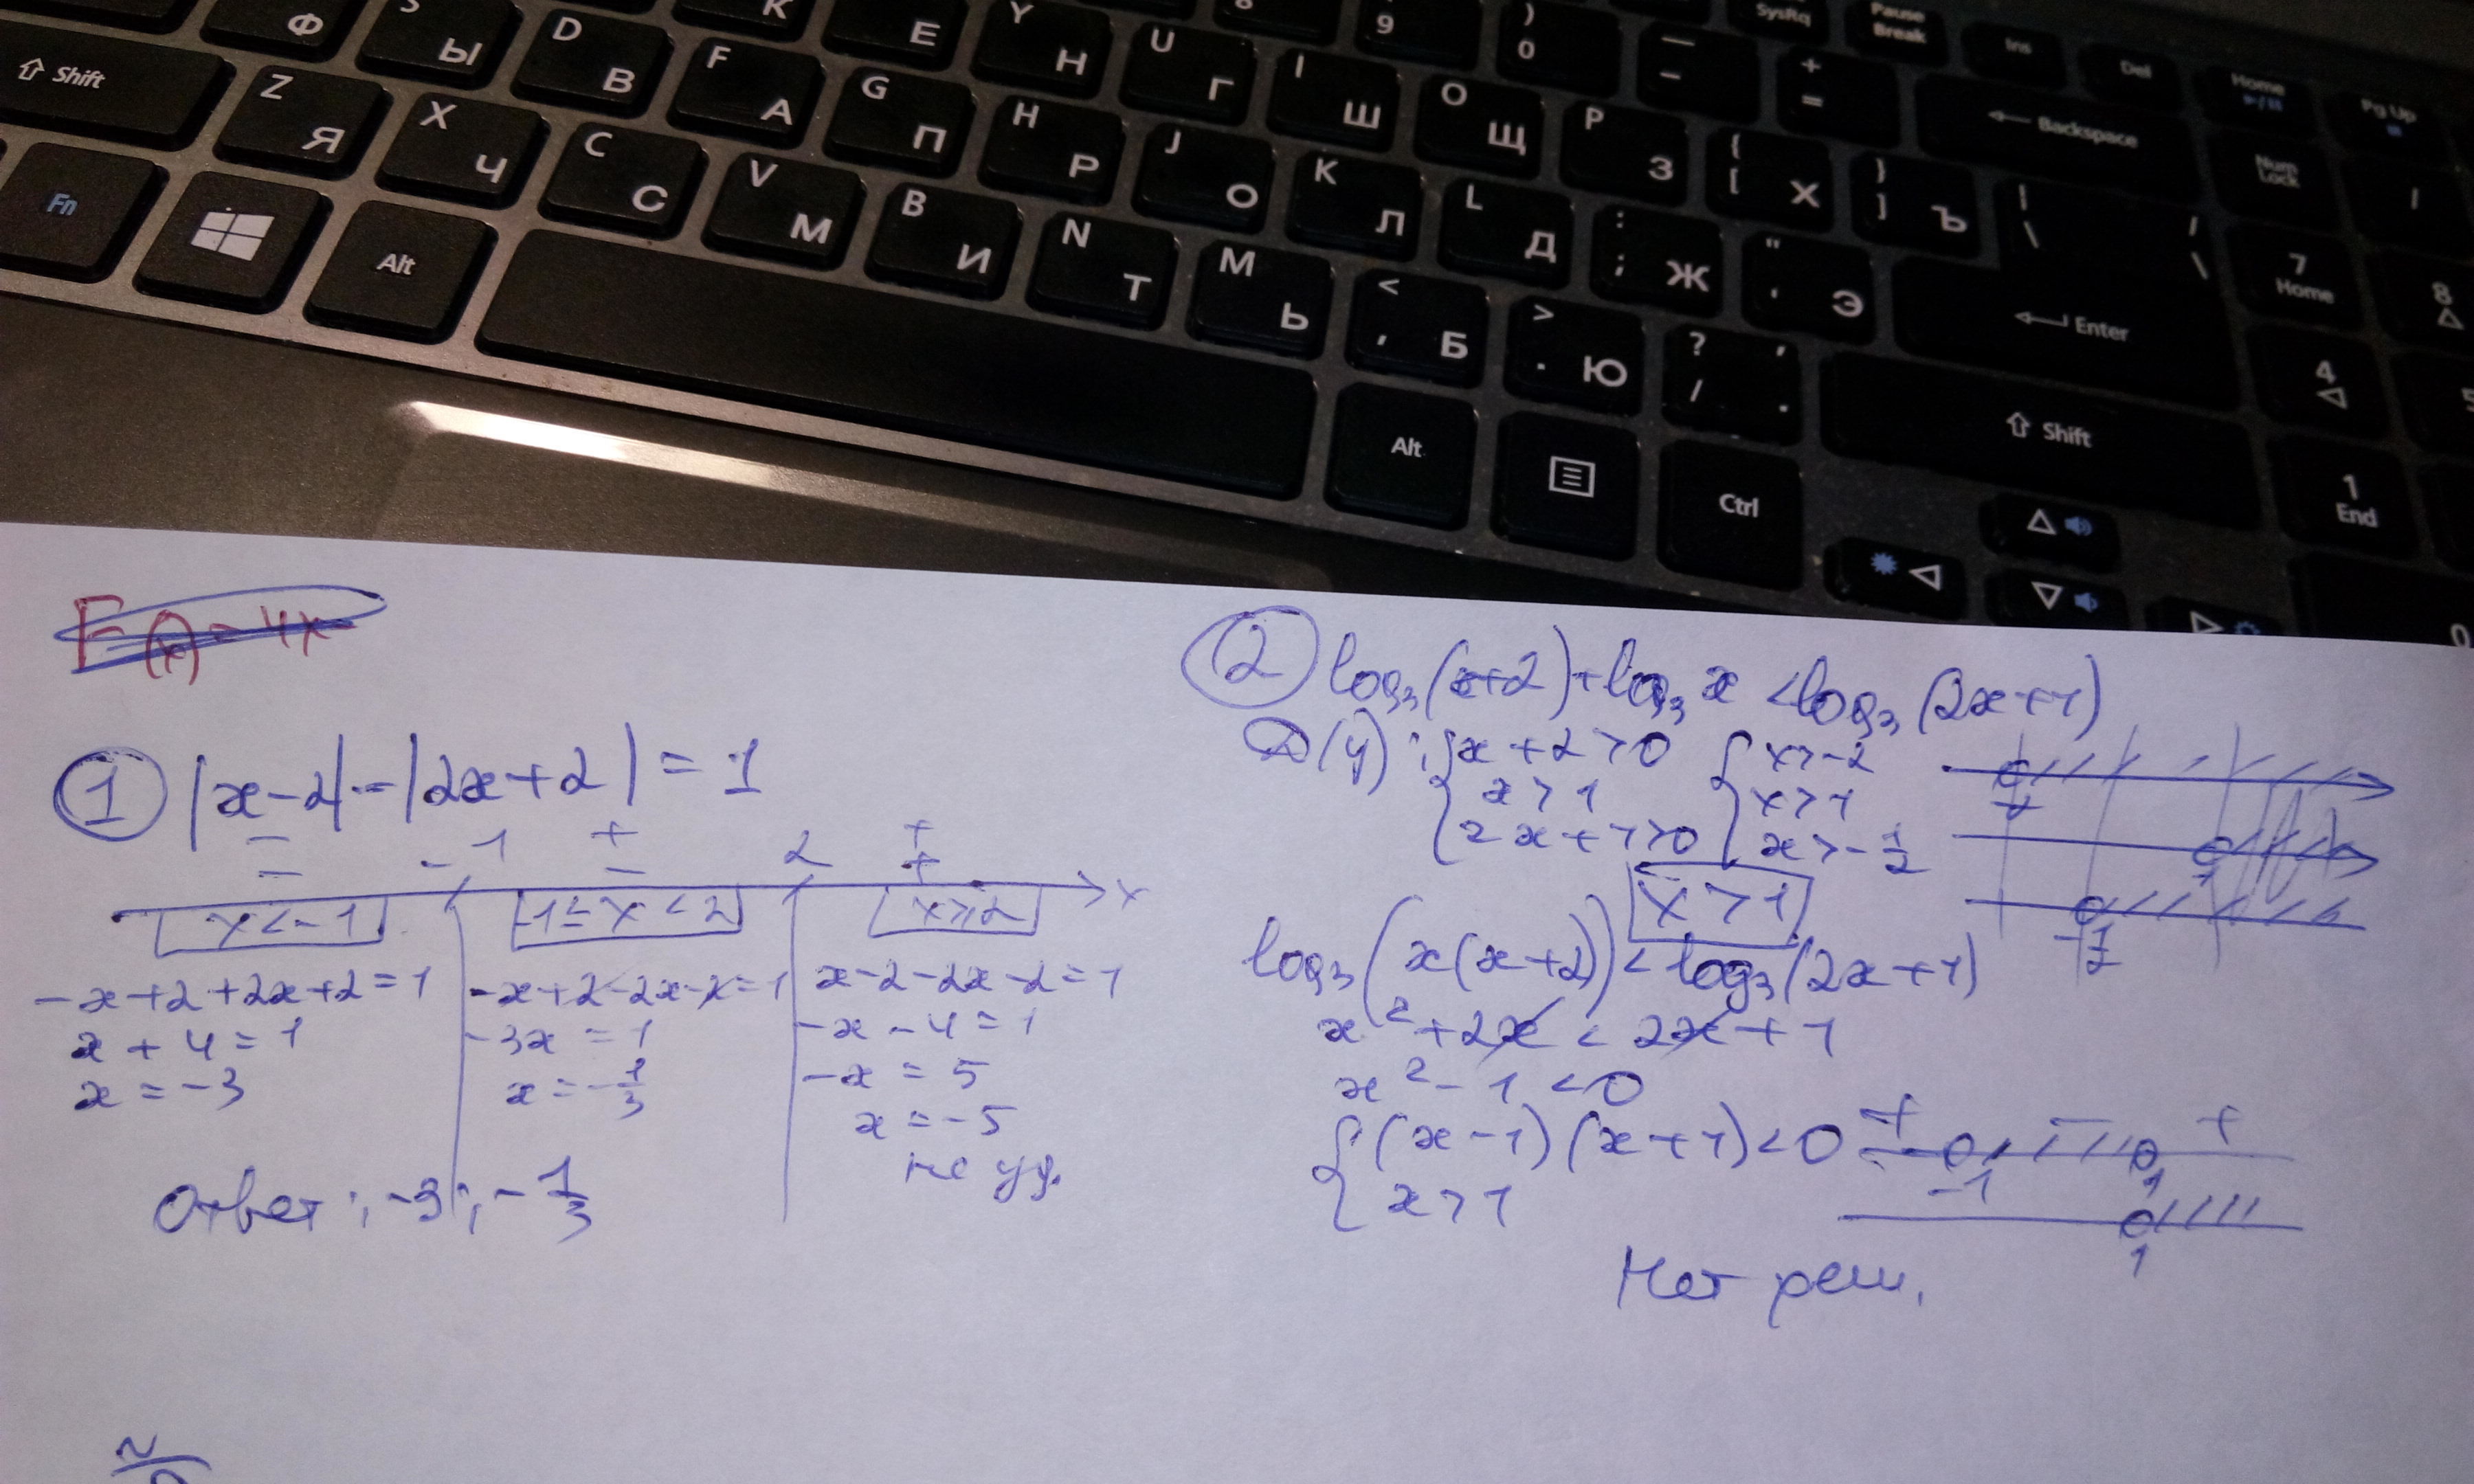 K
8
9
)
0
—
–
SysRq
Pause
Break
Ins
Del
Home
Pg Up
Ф
S
Ы
D
В
F
А
Е
Y
Н
U
Г
I
Ш
O
Щ
P
З
{
[
Х
}
]
Ъ
+
=
← Backspace
Num
Lock
/
Shift
Z
Я
X
Ч
C
С
V
М
G
П
H
Р
J
О
K
Л
L
Д
:
;
Ж
"
'
Э
|
\
/
\
Enter
7
Home
8
Fn
Alt
B
И
N
Т
M
Ь
<
,
Б
>
.
Ю
?
/
,
.
Shift
4
5
Alt
Ctrl
1
End
0
F(x) = 4x
① |x-2|-|2x+2| = 1
− -1 + 2 +
− − +
x
x<-1 -1≤x<2 x≥2
-x+2+2x+2=1
x+4=1
x=-3
-x+2-2x-2=1
-3x=1
x=-1/3
x-2-2x-2=1
-x-4=1
-x=5
x=-5
не уд.
Ответ: -3; -1/3
② log₃(x+2)+log₃x <log₃(2x+1)
D(y): { x+2>0 { x>-2
x>1 x>1
2x+1>0 x>-1/2
1
-1/2
x>1
log₃(x(x+2))<log₃(2x+1)
x²+2x<2x+1
x²-1<0
{ (x-1)(x+1)<0 + − +
-1 1
x>1
1
Нет реш.